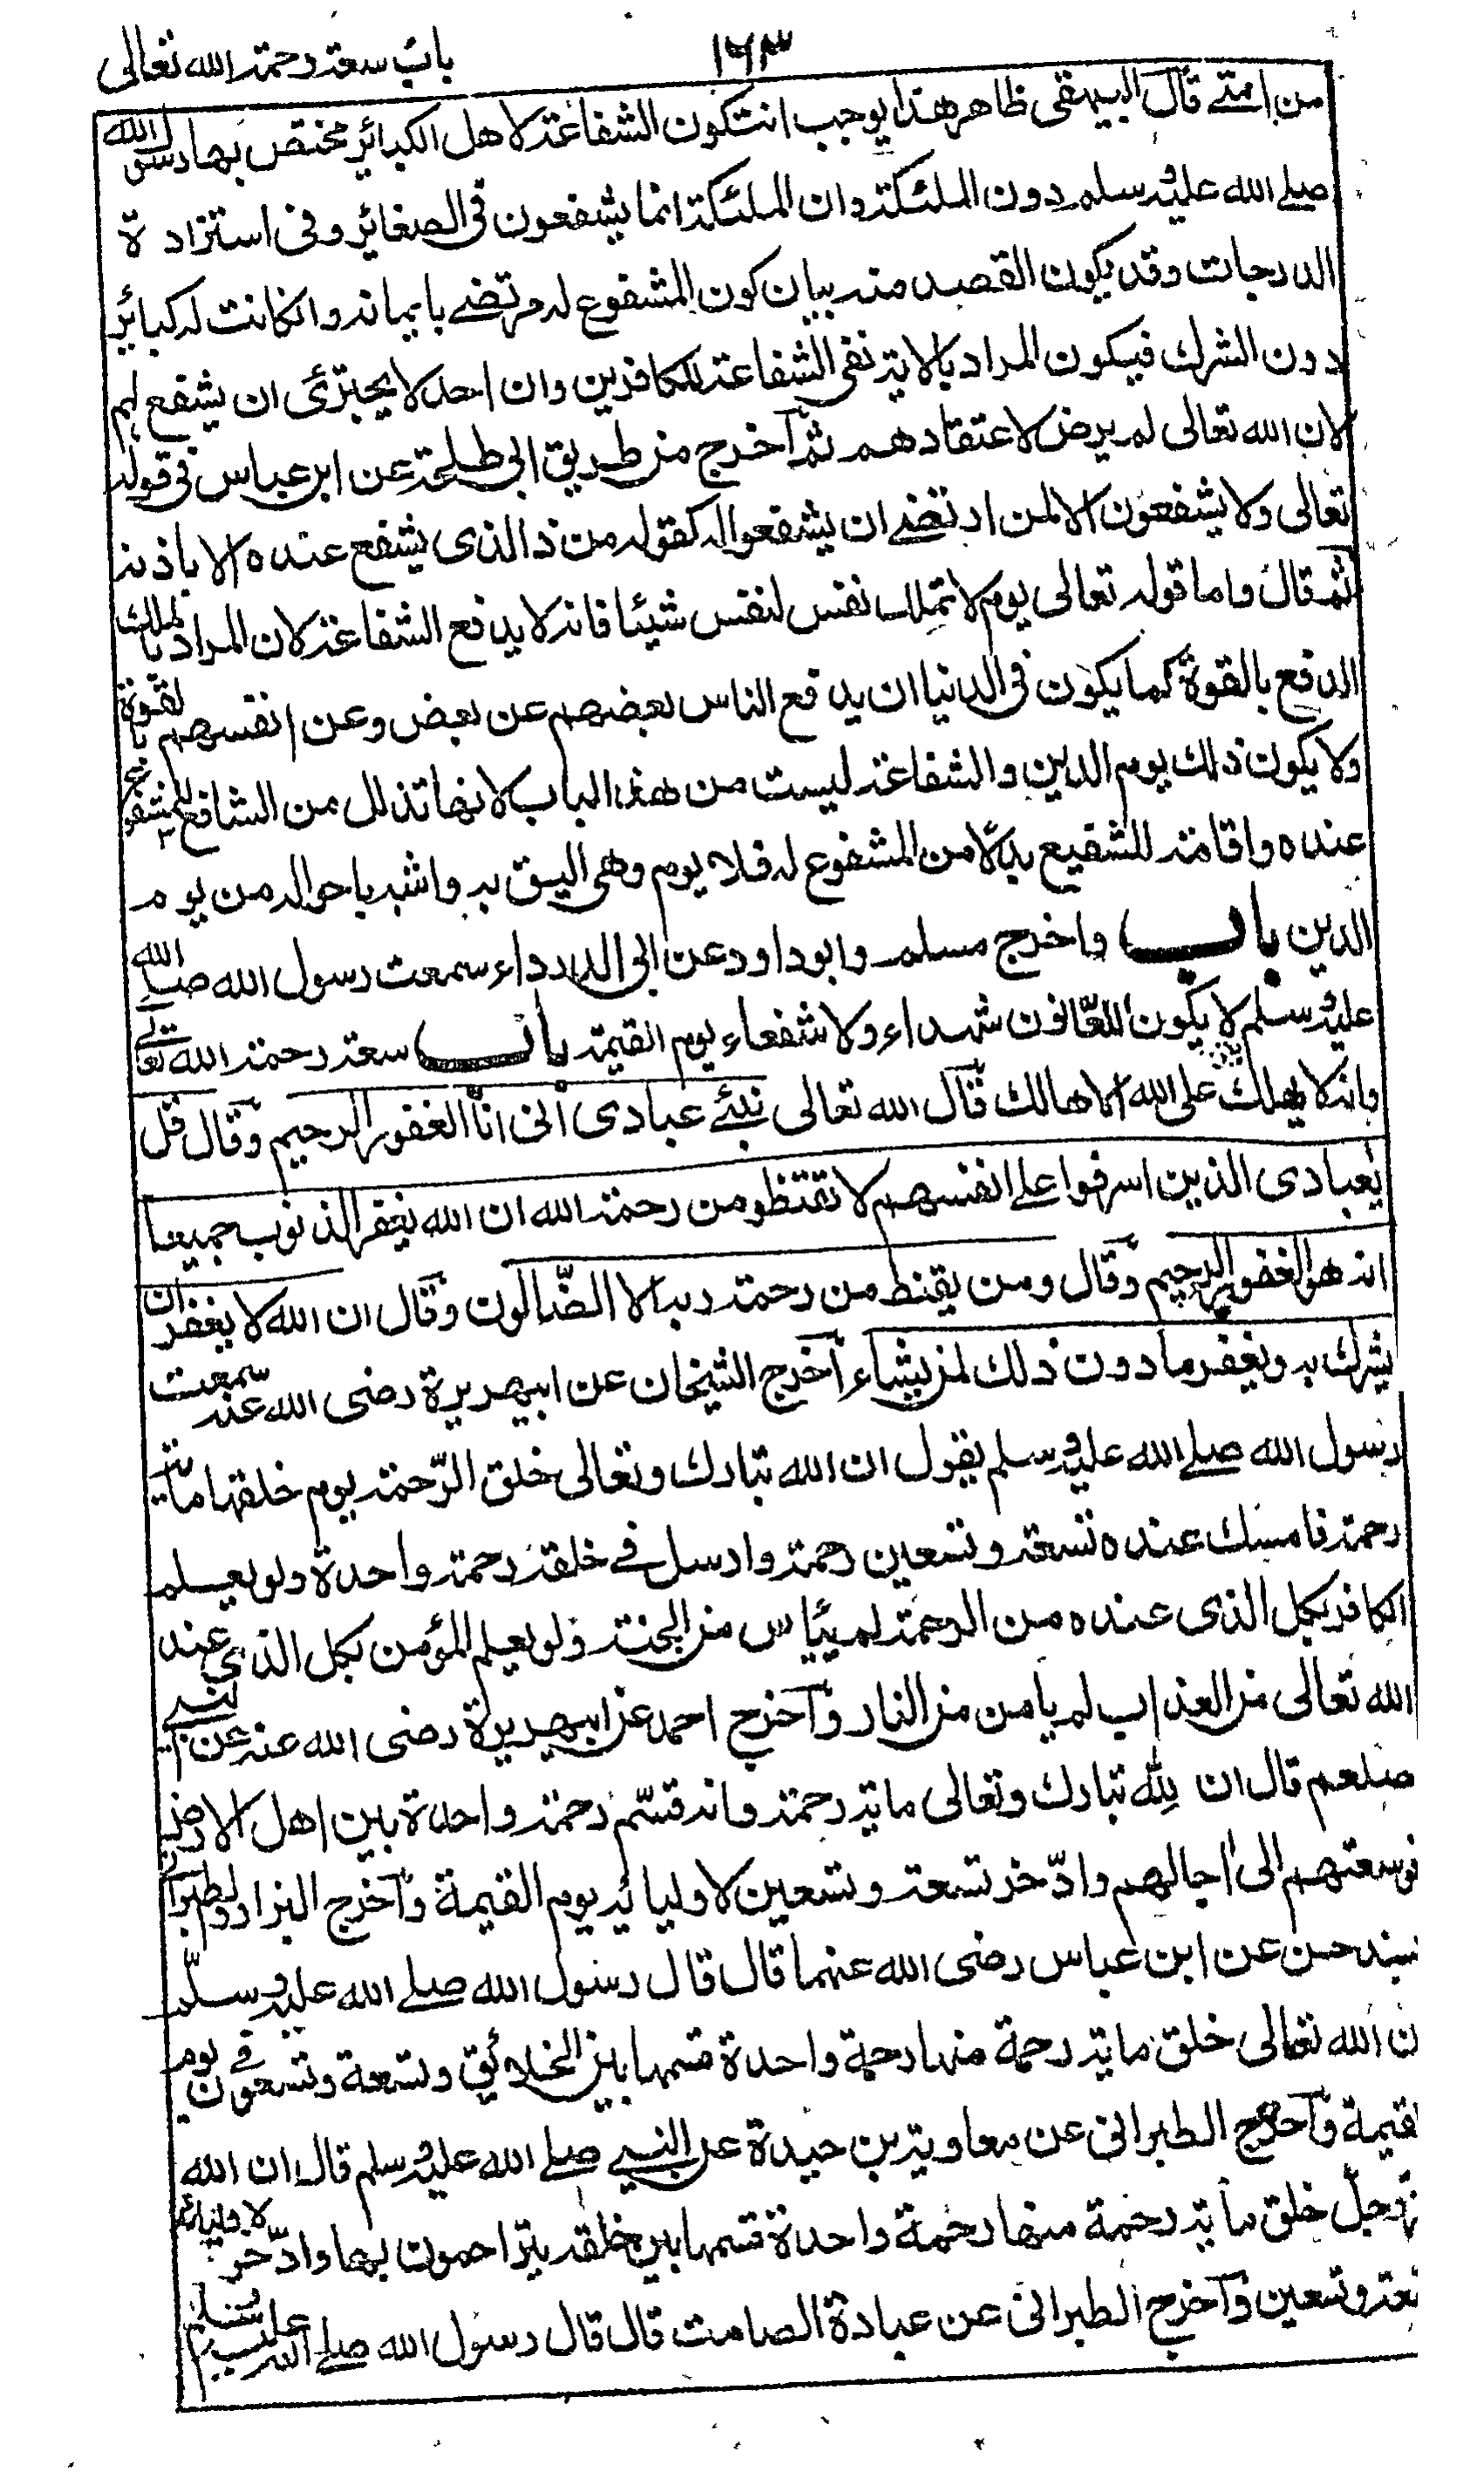 باب سعة رحمة الله تعالى
١٦٣
من امتے قال البیهقی ظاهر هذا یوجب انتکون الشفاعة لاهل الکبائر مختص بها رسول الله
صلے الله علیه وسلم دون الملئکة وان الملئکة انما یشفعون فی الصغائر وفی استزاد ة
الدرجات وقد یکون القصد منه بیان کون المشفوع له مرتضے بایمانه وانکانت له کبائر
دون الشرك فیکون المراد بالایة نفی الشفاعة للکافرین وان احدا لا یجترئ ان یشفع لهم
لان الله تعالی لم یرض لاعتقادهم ثم آخرج من طریق ابی طلحة عن ابن عباس فی قوله
تعالی ولا یشفعون الا لمن ارتضے ان یشفعوا له کقوله من ذا الذی یشفع عنده الا باذنه
ثم قال واما قوله تعالی یوم لا تملك نفس لنفس شیئا فانه لا یدفع الشفاعة لان المراد بالملك
الدفع بالقوة کما یکون فی الدنیا ان یدفع الناس بعضهم عن بعض وعن انفسهم بالقوة
ولا یکون ذلك یوم الدین والشفاعة لیست من هذا الباب لانها تذلل من الشافع للمشفوع
عنده واقامة للشفیع بدلا من المشفوع له فلا یوم وهی الیق به واشبه باحواله من یوم
الدین باب واخرج مسلم وابوداود عن ابی الدرداء سمعت رسول الله صلے الله
علیه وسلم لا یکون اللعانون شهداء ولا شفعاء یوم القیمة باب سعة رحمة الله تعالے
وانه لا یهلك علی الله الا هالك قال الله تعالی نبئے عبادی انی انا الغفور الرحیم وقال قل
یعبادی الذین اسرفوا علے انفسهم لا تقتظو من رحمة الله ان الله یغفر الذنوب جمیعا
انه هو الغفور الرحیم وقال ومن یقنط من رحمة ربه الا الضّالون وقال ان الله لا یغفر ان
یشرك به ویغفر ما دون ذلك لمن یشاء آخرج الشیخان عن ابیهریرة رضی الله عنه سمعت
رسول الله صلے الله علیه وسلم یقول ان الله تبارك وتعالی خلق الرّحمة یوم خلقها مایة
رحمة فامسك عنده تسعة وتسعین رحمة وارسل فے خلقه رحمة واحدة ولو یعلم
الکافر بکل الذی عنده من الرحمة لم ییٔاس من الجنة ولو یعلم المؤمن بکل الذی عند
الله تعالی من العذاب لم یامن من النار وآخرج احمد عن ابیهریرة رضی الله عنه عن النبے
صلعم قال ان لله تبارك وتعالی مایة رحمة وانه قسّم رحمة واحدة بین اهل الارض
فوسعتهم الی اجالهم وادّخر تسعة وتسعین لاولیائه یوم القیمة وآخرج البزار والطبرانی
بسند حسن عن ابن عباس رضی الله عنهما قال قال رسول الله صلے الله علیه وسلّم
ن الله تعالی خلق مایة رحمة منها رحمة واحدة قسمها بین الخلائق وتسعة وتسعون فے یوم
لقیمة وآخرج الطبرانی عن معاویة بن حیدة عن النبے صلے الله علیه وسلم قال ان الله
وجل خلق مایة رحمة منها رحمة واحدة قسمها بین خلقه یتراحمون بها وادّخر لاولیائه
تسعة وتسعین وآخرج الطبرانی عن عبادة الصامت قال قال رسول الله صلے الله علیه وسلم